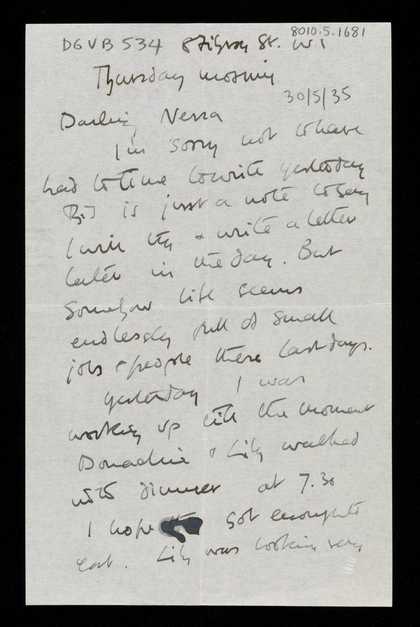 8010.5.1681
DGVB 534 8 Fitzroy St. W1
Thursday morning
30/5/35
Darling Nessa
I'm sorry not to have
had to time to write yesterday
This is just a note to say
I will try & write a letter
later in the day. But
Somehow life seems
endlessly full of small
jobs & people these last days.
yesterday I was
working up till the moment
& Lily walked
with dinner at 7.30
I hope got enough to
eat. Lily was looking very